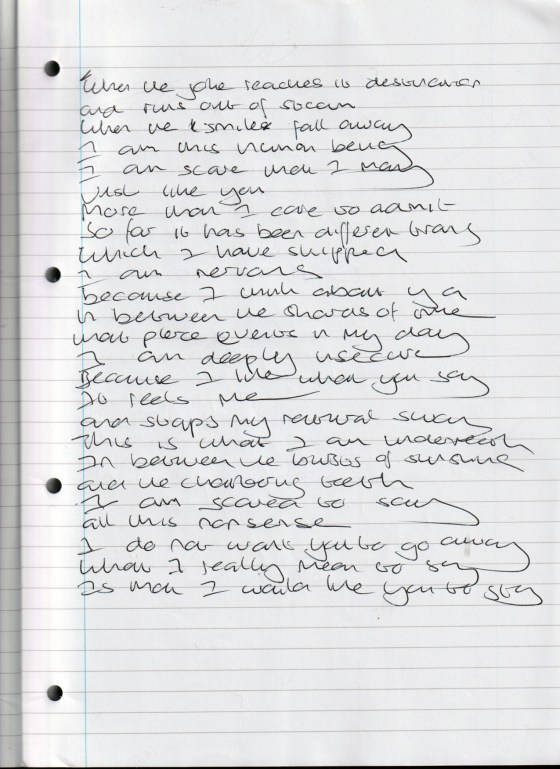 When the joke reaches its destination
and runs out of steam
When the smiles fall away
I am this human being
I am scare than I may
Just like you
More than I care to admit
So far it has been different
which I have skipped
I am nervous
because I think about
In between the shards of time
that pierce events in my day
I am deeply insecure
Because I like what you say
It feels me
and stops my natural sway
This is what I am underneath
In between the bursts of sunshine
and the chattering teeth
I am scared to say
all this nonsense
I do not want you to go away
What I really mean to say
Is that I would like you to stay